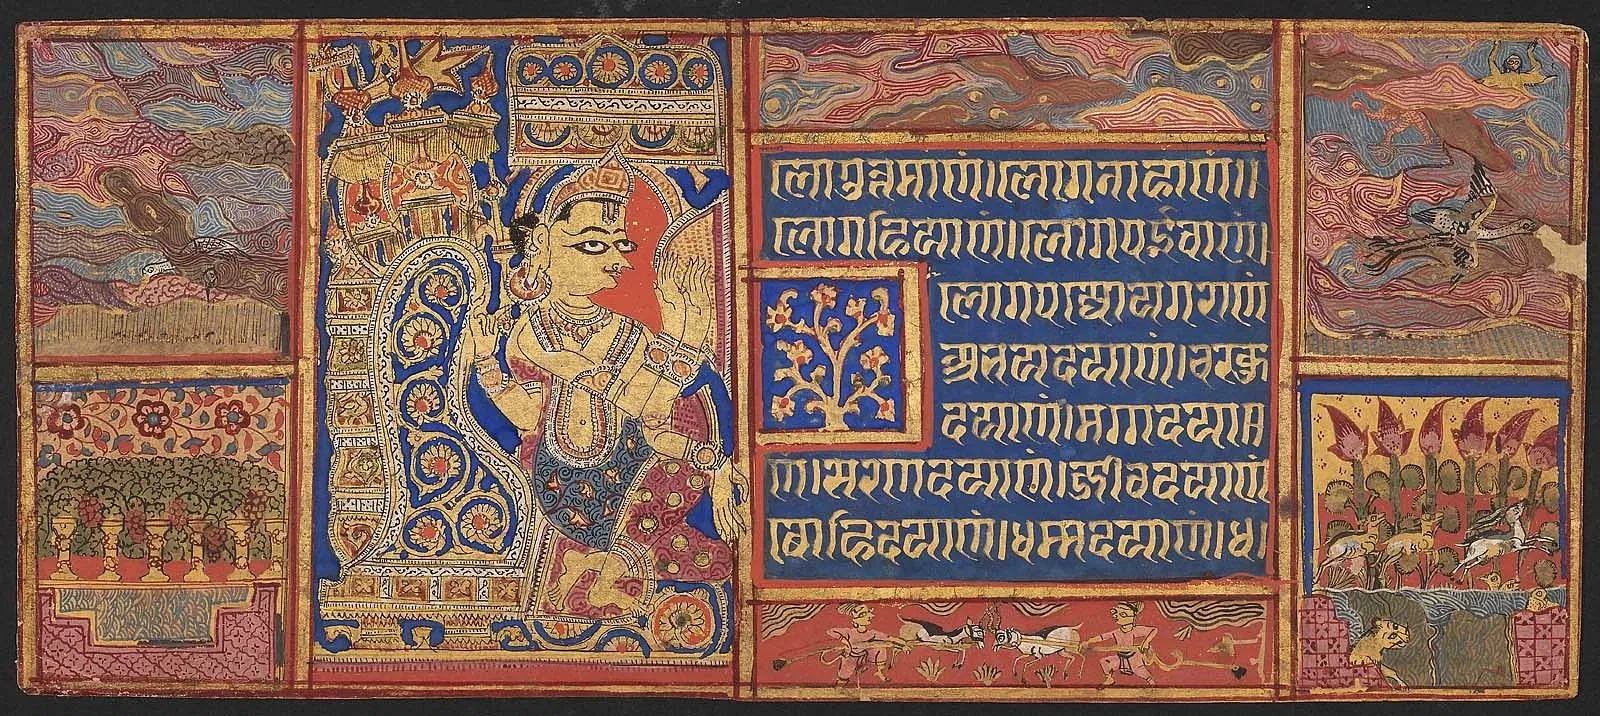 लोगुत्तमाणं।लोगनाहाणं।।
लोगहियाणं।लोगपईवाणं।
लोगपज्जोयगराणं
अभयदयाणं।चक्खु
दयाणं।मग्गदया
णं।सरणदयाणं।जीवदयाणं
बोहिदयाणं।धम्मदयाणं।ध।